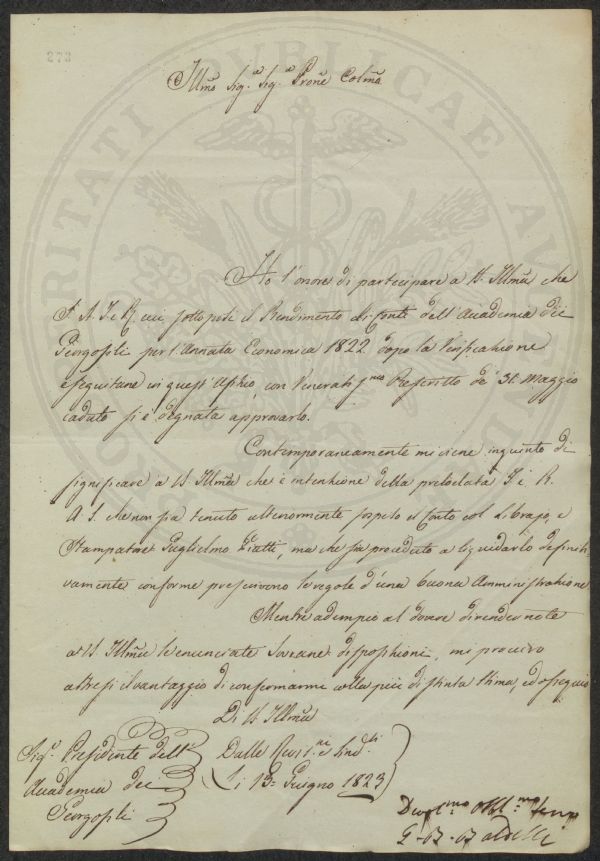 273
Illmo Sig.e Sig.e Prone Colmo
Ho l'onore di partecipare a V.S. Illma che
S. A. I. e R. cui sottoposi il Rendimento di Conti dell'Accademia dei
Georgofili per l'Annata Economica 1822 dopo la Verificazione
eseguitane in quest'Uffizio, con Venerato suo Rescritto de' 31. Maggio
caduto si è degnata approvarlo.
Contemporaneamente mi viene ingiunto di
significare a V.S. Illma che è intenzione della prelodata I. e R.
A. S. che non sia tenuto ulteriormente sospeso il Conto col Librajo, e
Stampatore Guglielmo Piatti, ma che sia proceduto a liquidarlo definiti
vamente conforme prescrivono le regole d'una buona Amministrazione
Mentre adempio al dovere di render note
a V.S. Illma le enunciate Sovrane disposizioni, mi procuro
altresì il vantaggio di confermarmi colla più distinta stima, ed ossequio
Di V.S. Illma
Sig.e Presidente dell'
Accademia dei
Georgofili
Dalle Revis.ni e Sind.ti
Li 13 Giugno 1823
Dev.mo Obbl.mo Serv.
PROSPERITATI PUBLICAE AUGENDAE